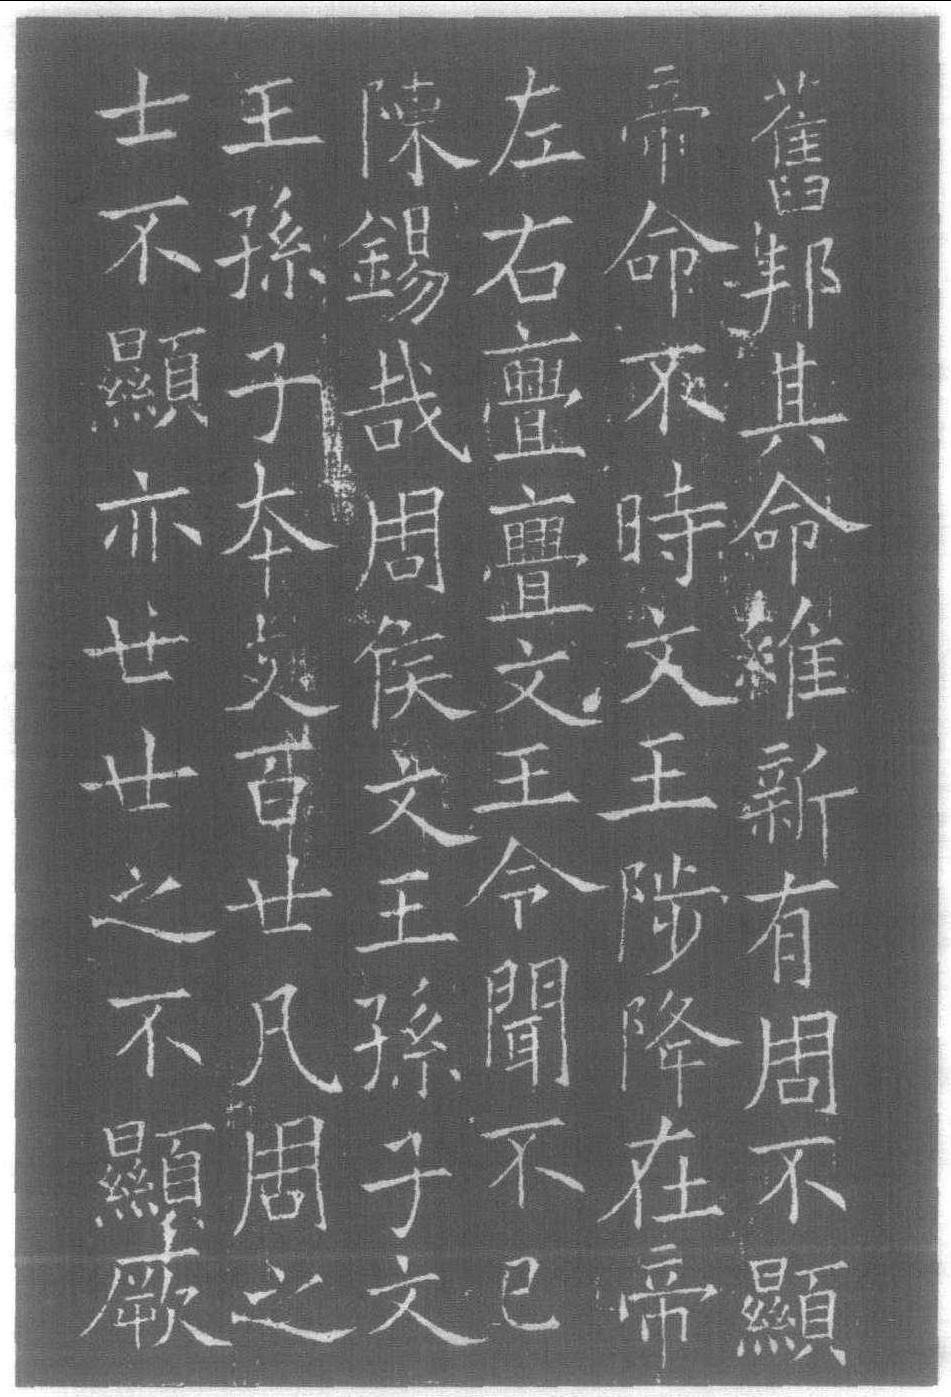 舊邦其命維新有周不顯
帝命不時文王陟降在帝
左右亹亹文王令聞不已
陳錫哉周侯文王孫子文
王孫子本支百世凡周之
士不顯亦世世之不顯厥